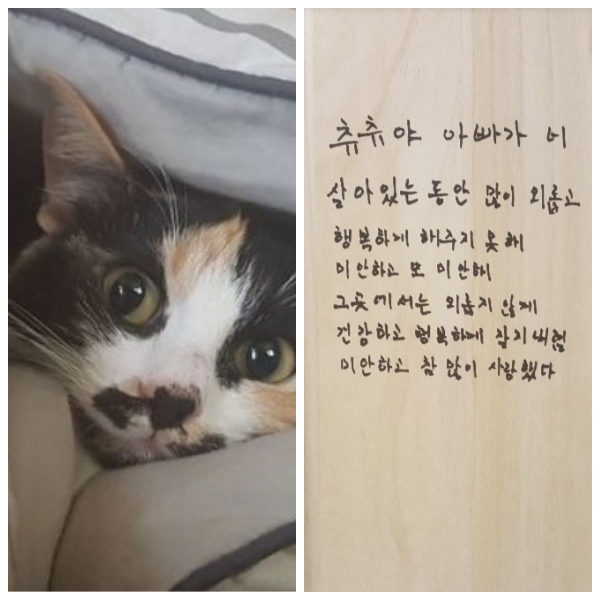 츄츄야 아빠가 너
살아있는 동안 많이 외롭고
행복하게 해주지 못해
미안하고 또 미안해
그곳에서는 외롭지 않게
건강하고 행복하게 잘지내렴
미안하고 참 많이 사랑했다